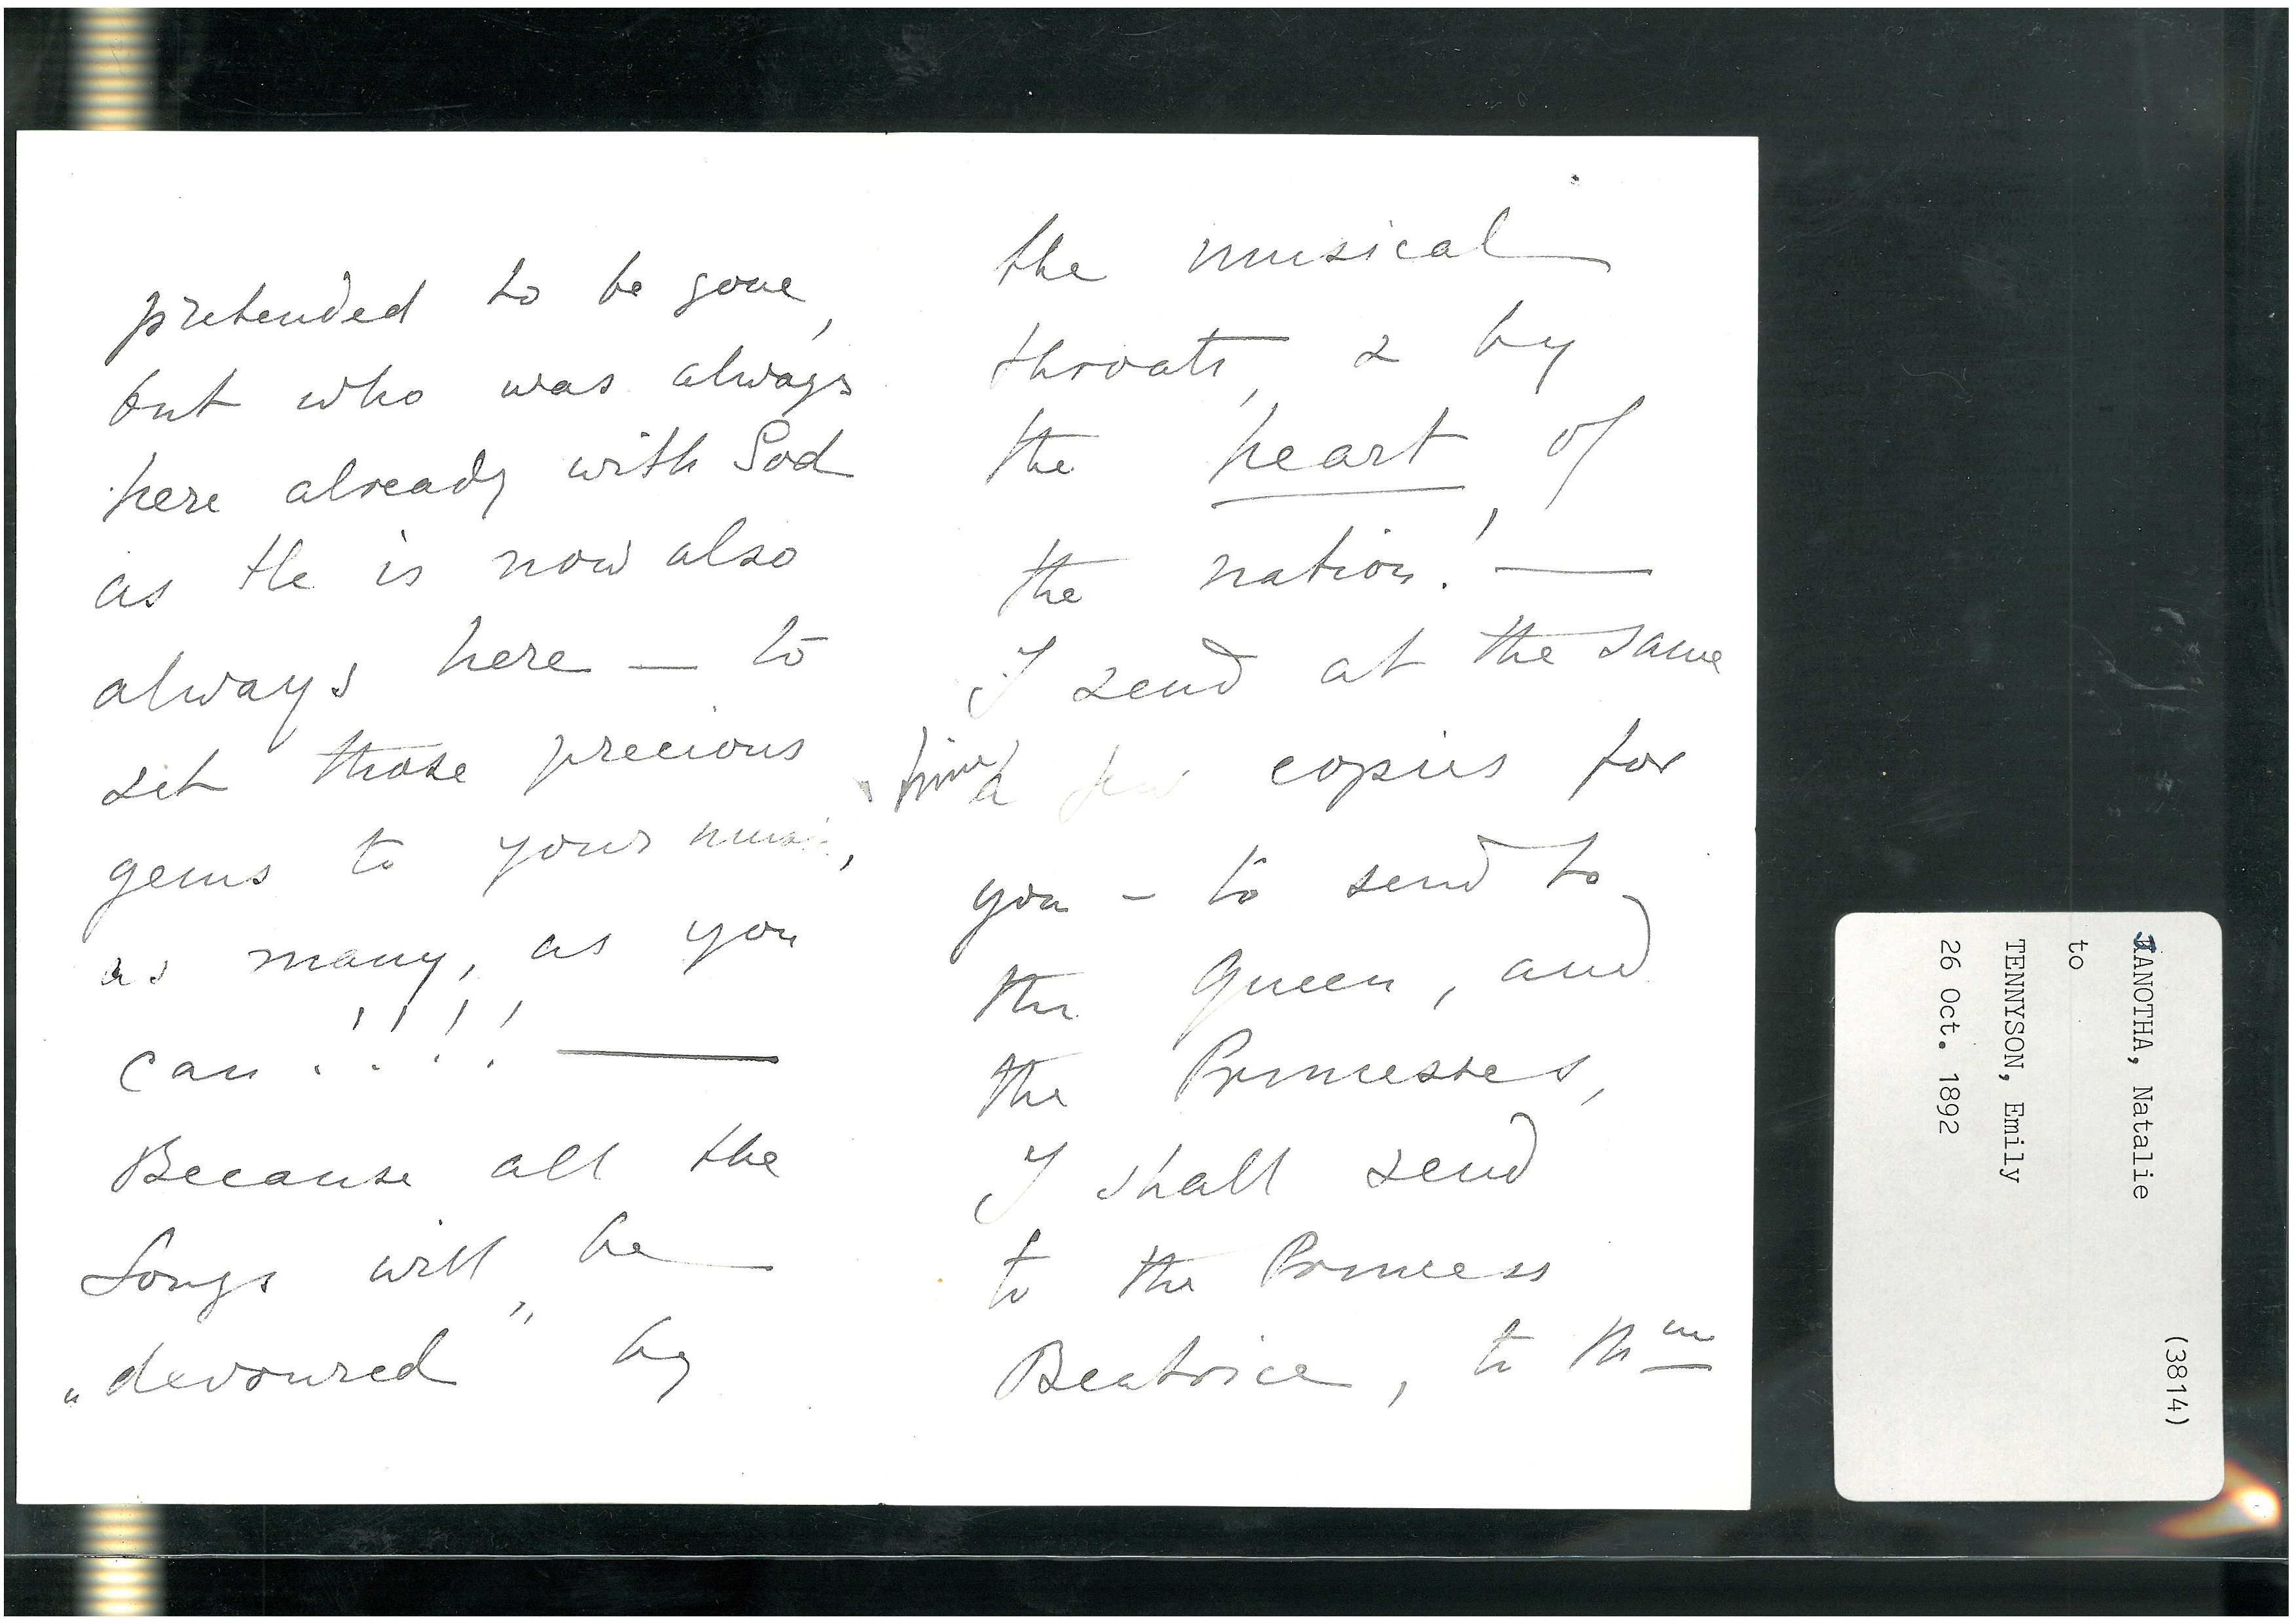 pretended to be gone,
but who was always
here already with God
as He is now also
always here — to
set those precious
gems to your music,
as many, as you
can!!!! —
Because all the
Songs will be
„devoured" by
the musical
throats, & by
the heart, of
the nation! —
I send at the same
time a few copies for
you - to send to
the Queen, and
the Princesses,
I shall send
to the Princess
Beatrice, to Mme
(3814)
JANOTHA, Natalie
to
TENNYSON, Emily
26 Oct. 1892